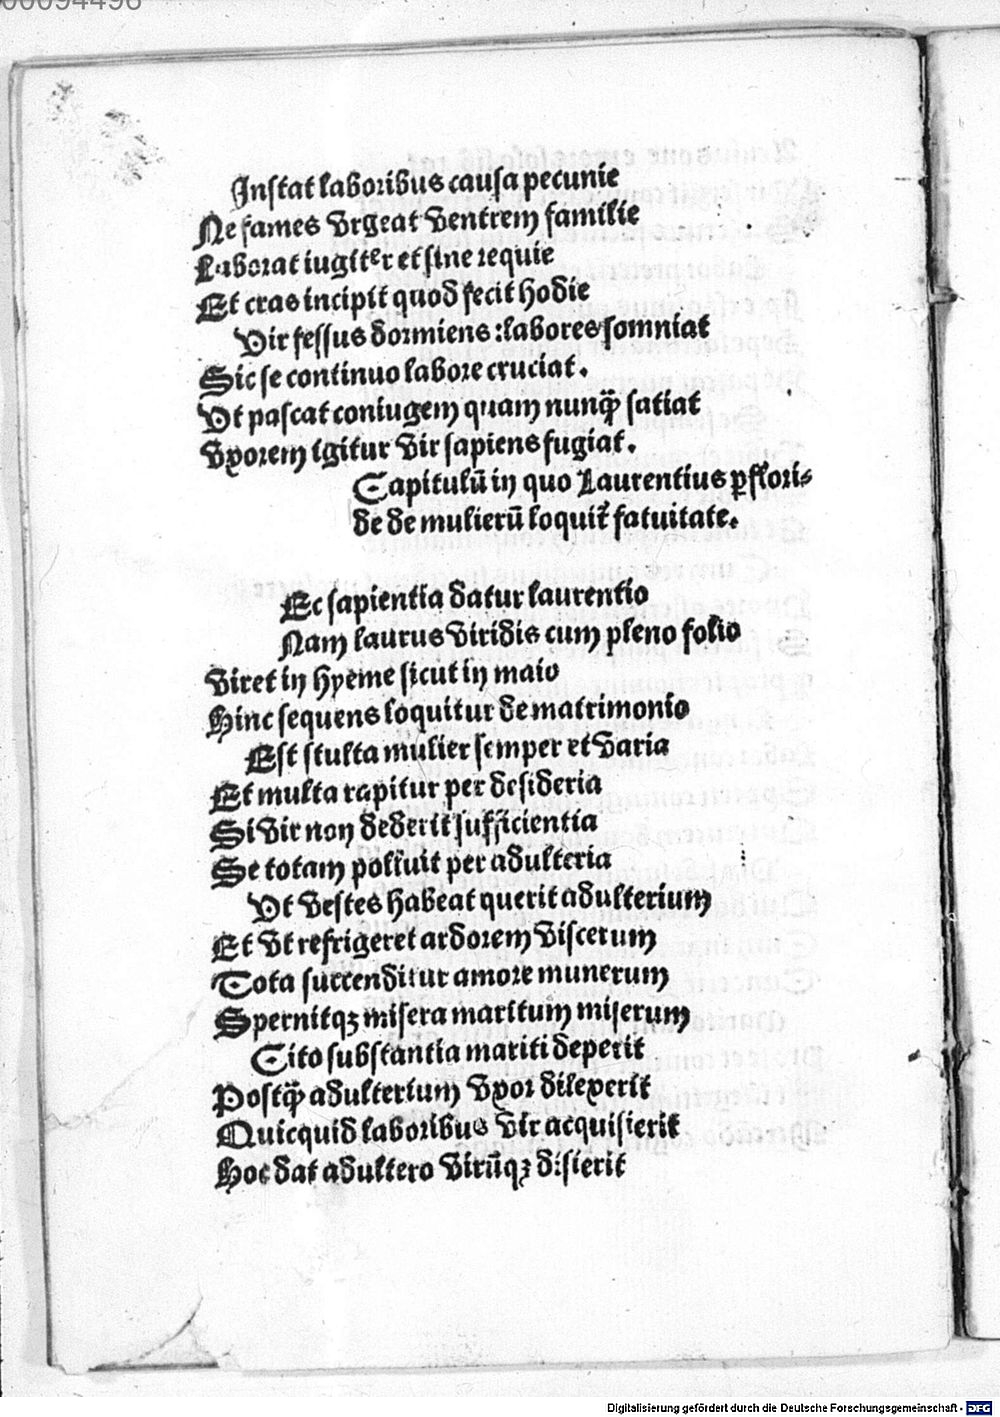 00094496
Instat laboribus causa pecunie
Ne fames vrgeat ventrem familie
Laborat iugiter et sine requie
Et cras incipit quod fecit hodie
Vir fessus dormiens: labores somniat
Sic se continuo labore cruciat.
Vt pascat coniugem quam nunq̃ satiat
Vxorem igitur vir sapiens fugiat.
Capitulū in quo Laurentius ꝑ flori-
de de mulierū loquit᷑ fatuitate.
Ec sapientia datur laurentio
Nam laurus viridis cum pleno folio
Viret in hyeme sicut in maio
Hinc sequens loquitur de matrimonio
Est stulta mulier semper et varia
Et multa rapitur per desideria
Si vir non dederit sufficientia
Se totam polluit per adulteria
Vt vestes habeat querit adulterium
Et vt refrigeret ardorem viscerum
Tota succenditur amore munerum
Spernitqꝫ misera maritum miserum
Cito substantia mariti deperit
Postq̃ adulterium vxor dilexerit
Quicquid laboribus vir acquisierit
Hoc dat adultero virūqꝫ diserit
Digitalisierung gefördert durch die Deutsche Forschungsgemeinschaft - DFG